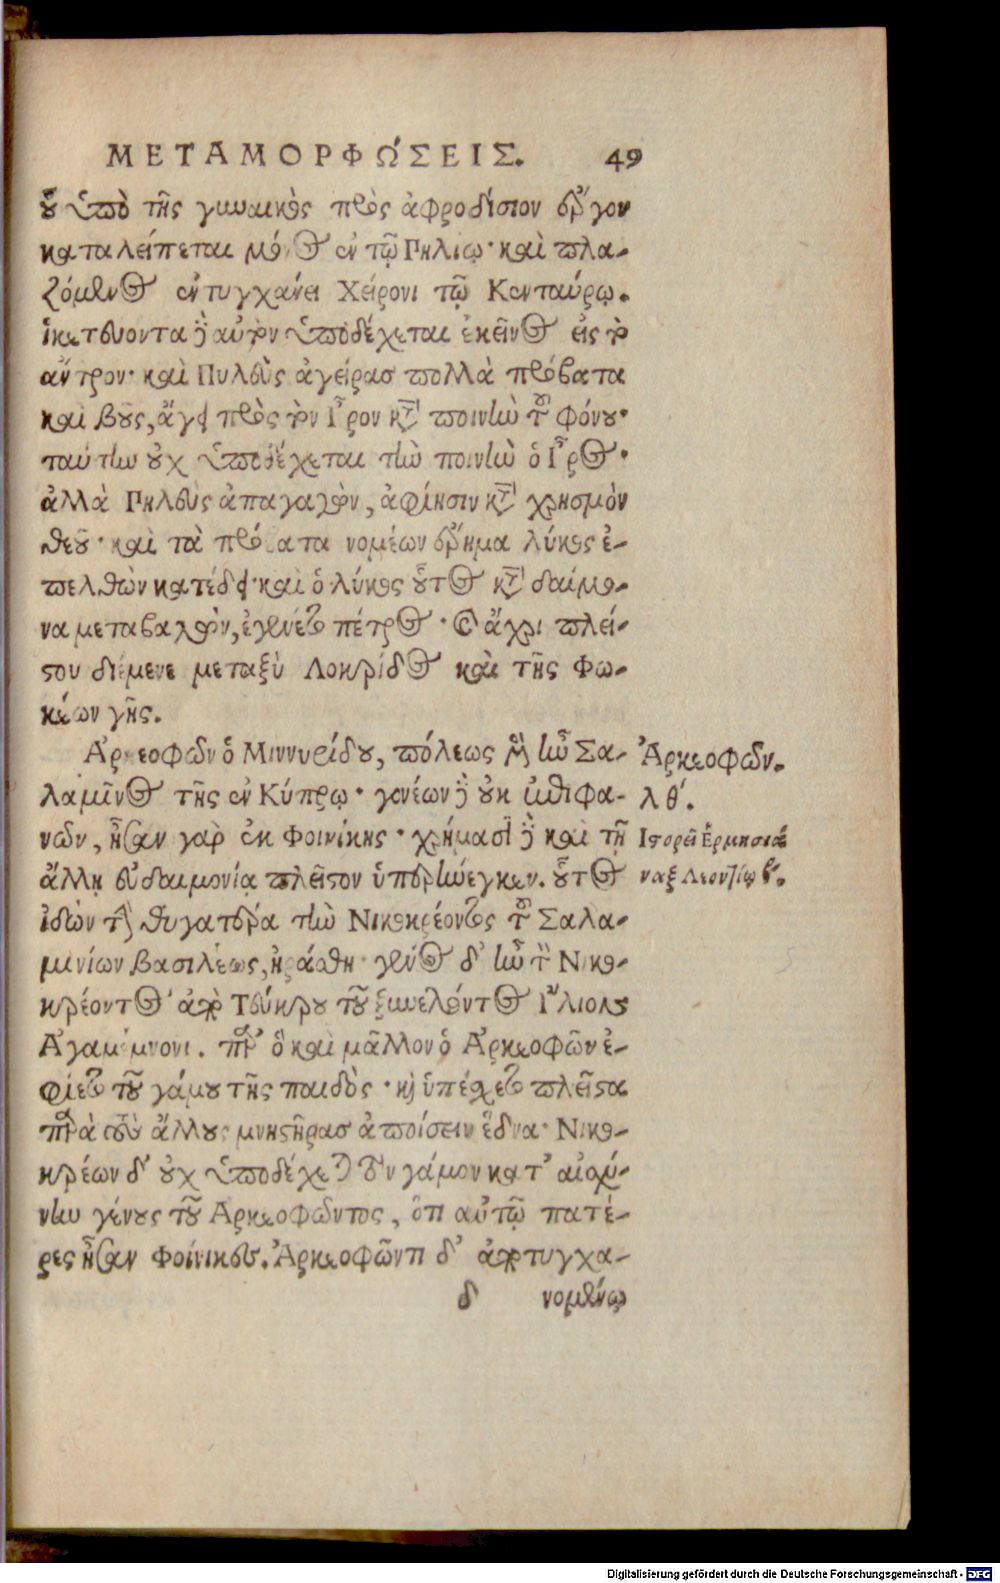 ΜΕΤΑΜΟΡΦΏΣΕΙΣ. 49
ὑπὸ τῆς γυναικὸς πρὸς ἀφροδίσιον ἔργον
καταλείπεται μόνος ἐν τῷ Πηλίῳ· καὶ πλα-
ζόμενος ἐντυγχάνει Χείρονι τῷ Κενταύρῳ.
ἱκετεύοντα δὲ αὐτὸν ὑποδέχεται ἐκεῖνος εἰς τὸ
ἄντρον· καὶ Πηλεὺς ἀγείρας πολλὰ πρόβατα
καὶ βοῦς, ἄγει πρὸς τὸν Ἶρον κατὰ ποινὴν τοῦ φόνου·
ταύτην οὐχ ὑποδέχεται τὴν ποινὴν ὁ Ἶρος·
ἀλλὰ Πηλεὺς ἀπαγαγὼν, ἀφίησιν κατὰ χρησμὸν
θεοῦ· καὶ τὰ πρόβατα νομέων ἔρημα λύκος ἐ-
πελθὼν κατέδει· καὶ ὁ λύκος οὗτος κατὰ δαίμο-
να μεταβαλὼν, ἐγένετο πέτρος· καὶ ἄχρι πλεί-
στου διέμενε μεταξὺ Λοκρίδος καὶ τῆς Φω-
κέων γῆς.
Ἀρκεοφῶν ὁ Μιννυρίδου, πόλεως μὲν ἦν Σα-
λαμῖνος τῆς ἐν Κύπρῳ· γονέων δὲ οὐκ ἐπιφα-
νῶν, ἦσαν γὰρ ἐκ Φοινίκης· χρήμασι δὲ καὶ τῇ
ἄλλῃ εὐδαιμονίᾳ πλεῖστον ὑπερήνεγκεν. οὗτος
ἰδὼν τὴν θυγατέρα τὴν Νικοκρέοντος τοῦ Σαλα-
μινίων βασιλέως, ἠράσθη· γένος δ' ἦν τοῦ Νικο-
κρέοντος ἀπὸ Τεύκρου τοῦ ξυνελόντος Ἴλιον
Ἀγαμέμνονι. παρ' ὃ καὶ μᾶλλον ὁ Ἀρκεοφῶν ἐ-
φίετο τοῦ γάμου τῆς παιδὸς· καὶ ὑπέσχετο πλεῖστα
παρὰ τοὺς ἄλλους μνηστῆρας ἀποίσειν ἕδνα· Νικο-
κρέων δ' οὐχ ὑποδέχεται τὸν γάμον κατ' αἰσχύ-
νην γένους τοῦ Ἀρκεοφῶντος, ὅτι αὐτῷ πατέ-
ρες ἦσαν Φοίνικες. Ἀρκεοφῶντι δ' ἀποτυγχα-
δ νομένῳ
Ἀρκεοφῶν.
λθ'.
Ἱστορεῖ Ἑρμησιά-
ναξ Λεοντίῳ β'.
Digitalisierung gefördert durch die Deutsche Forschungsgemeinschaft - DFG